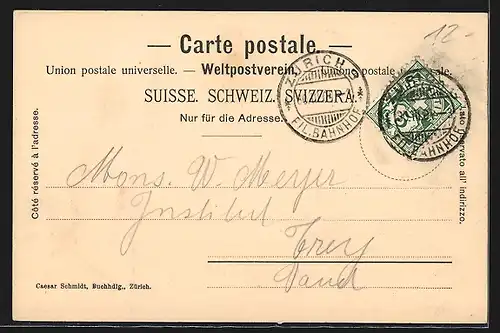 12.-
— Carte postale. —
Union postale universelle. — Weltpostverein. — Unione postale
SUISSE. SCHWEIZ. SVIZZERA.
Nur für die Adresse.
ZÜRICH
FIL. BAHNHOF
FIL. BAHNHOF
Côté réservé à l'adresse.
riservato all' indirizzo.
Mons. W. Meyer
Institut
Trey
Vaud
Caesar Schmidt, Buchhdlg., Zürich.